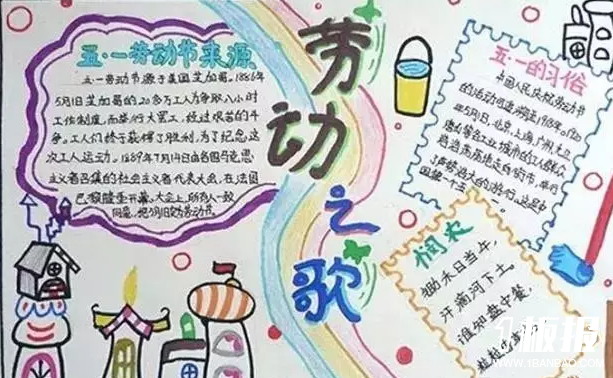 五·一劳动节来源
五·一劳动节源于美国芝加哥。1886年
5月1日芝加哥的20多万工人为争取八小时
工作制度,而举行大罢工,经过艰苦的斗
争。工人们终于获得了胜利,为了纪念这
次工人运动。1889年7月14日由各国马克思
主义者召集的社会主义者代表大会,在法国
巴黎隆重开幕。大会上,所有人一致
同意,把5月1日
劳动之歌
五·一的习俗
中国人民庆祝劳动节
的活动可追溯到1918年。
年5月1日,北京,上海,广州,九江
唐山等各工业城市的工人群众
浩浩荡荡走向街市,举行
了声势浩大的游行。这是中
国第一个五一
悯农
锄禾日当午,
汗滴河下土。
谁知盘中餐,
粒粒
1板报
WWW.1BANBAO.COM